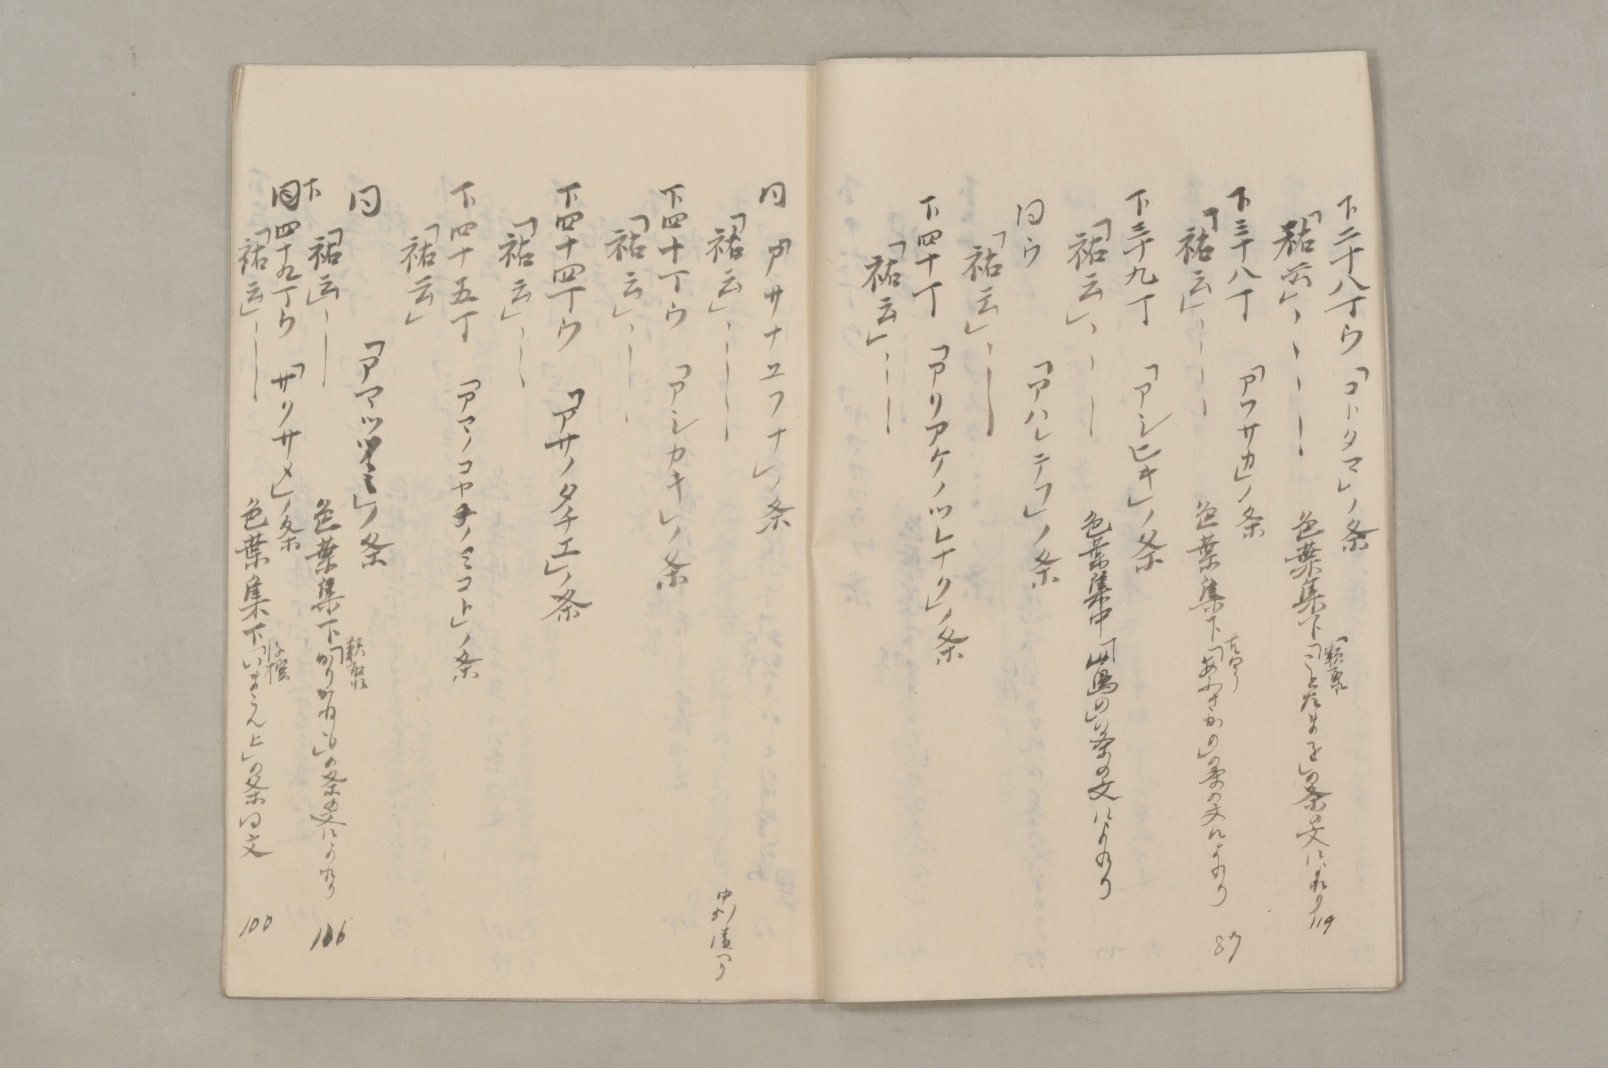 下二十八丁ウ「コトタマ」ノ条
「祐云」
色葉集下「ことたまを」の条の文によれり 119
下三十八丁「アフサカ」ノ条
「祐云」
色葉集下「あふさかの」の条の文によれり 87
下三十九丁「アシヒキ」ノ条
「祐云」
色葉集中「山鳥の」の条の文によれり
同ウ「アハレテフ」ノ条
「祐云」
下四十丁「アリアケノツレナク」ノ条
「祐云」
同「アサナユフナ」ノ条
「祐云」
下四十丁ウ「アシカキ」ノ条
「祐云」
下四十四丁ウ「アサノタチエ」ノ条
「祐云」
下四十五丁「アマノコヤネノミコト」ノ条
「祐云」
同「アマツツミ」ノ条
「祐云」
色葉集下「かりがねの」の条の文によれり 106
下同四十九丁ウ「サクサメ」ノ条
「祐云」
色葉集下の条同文 100